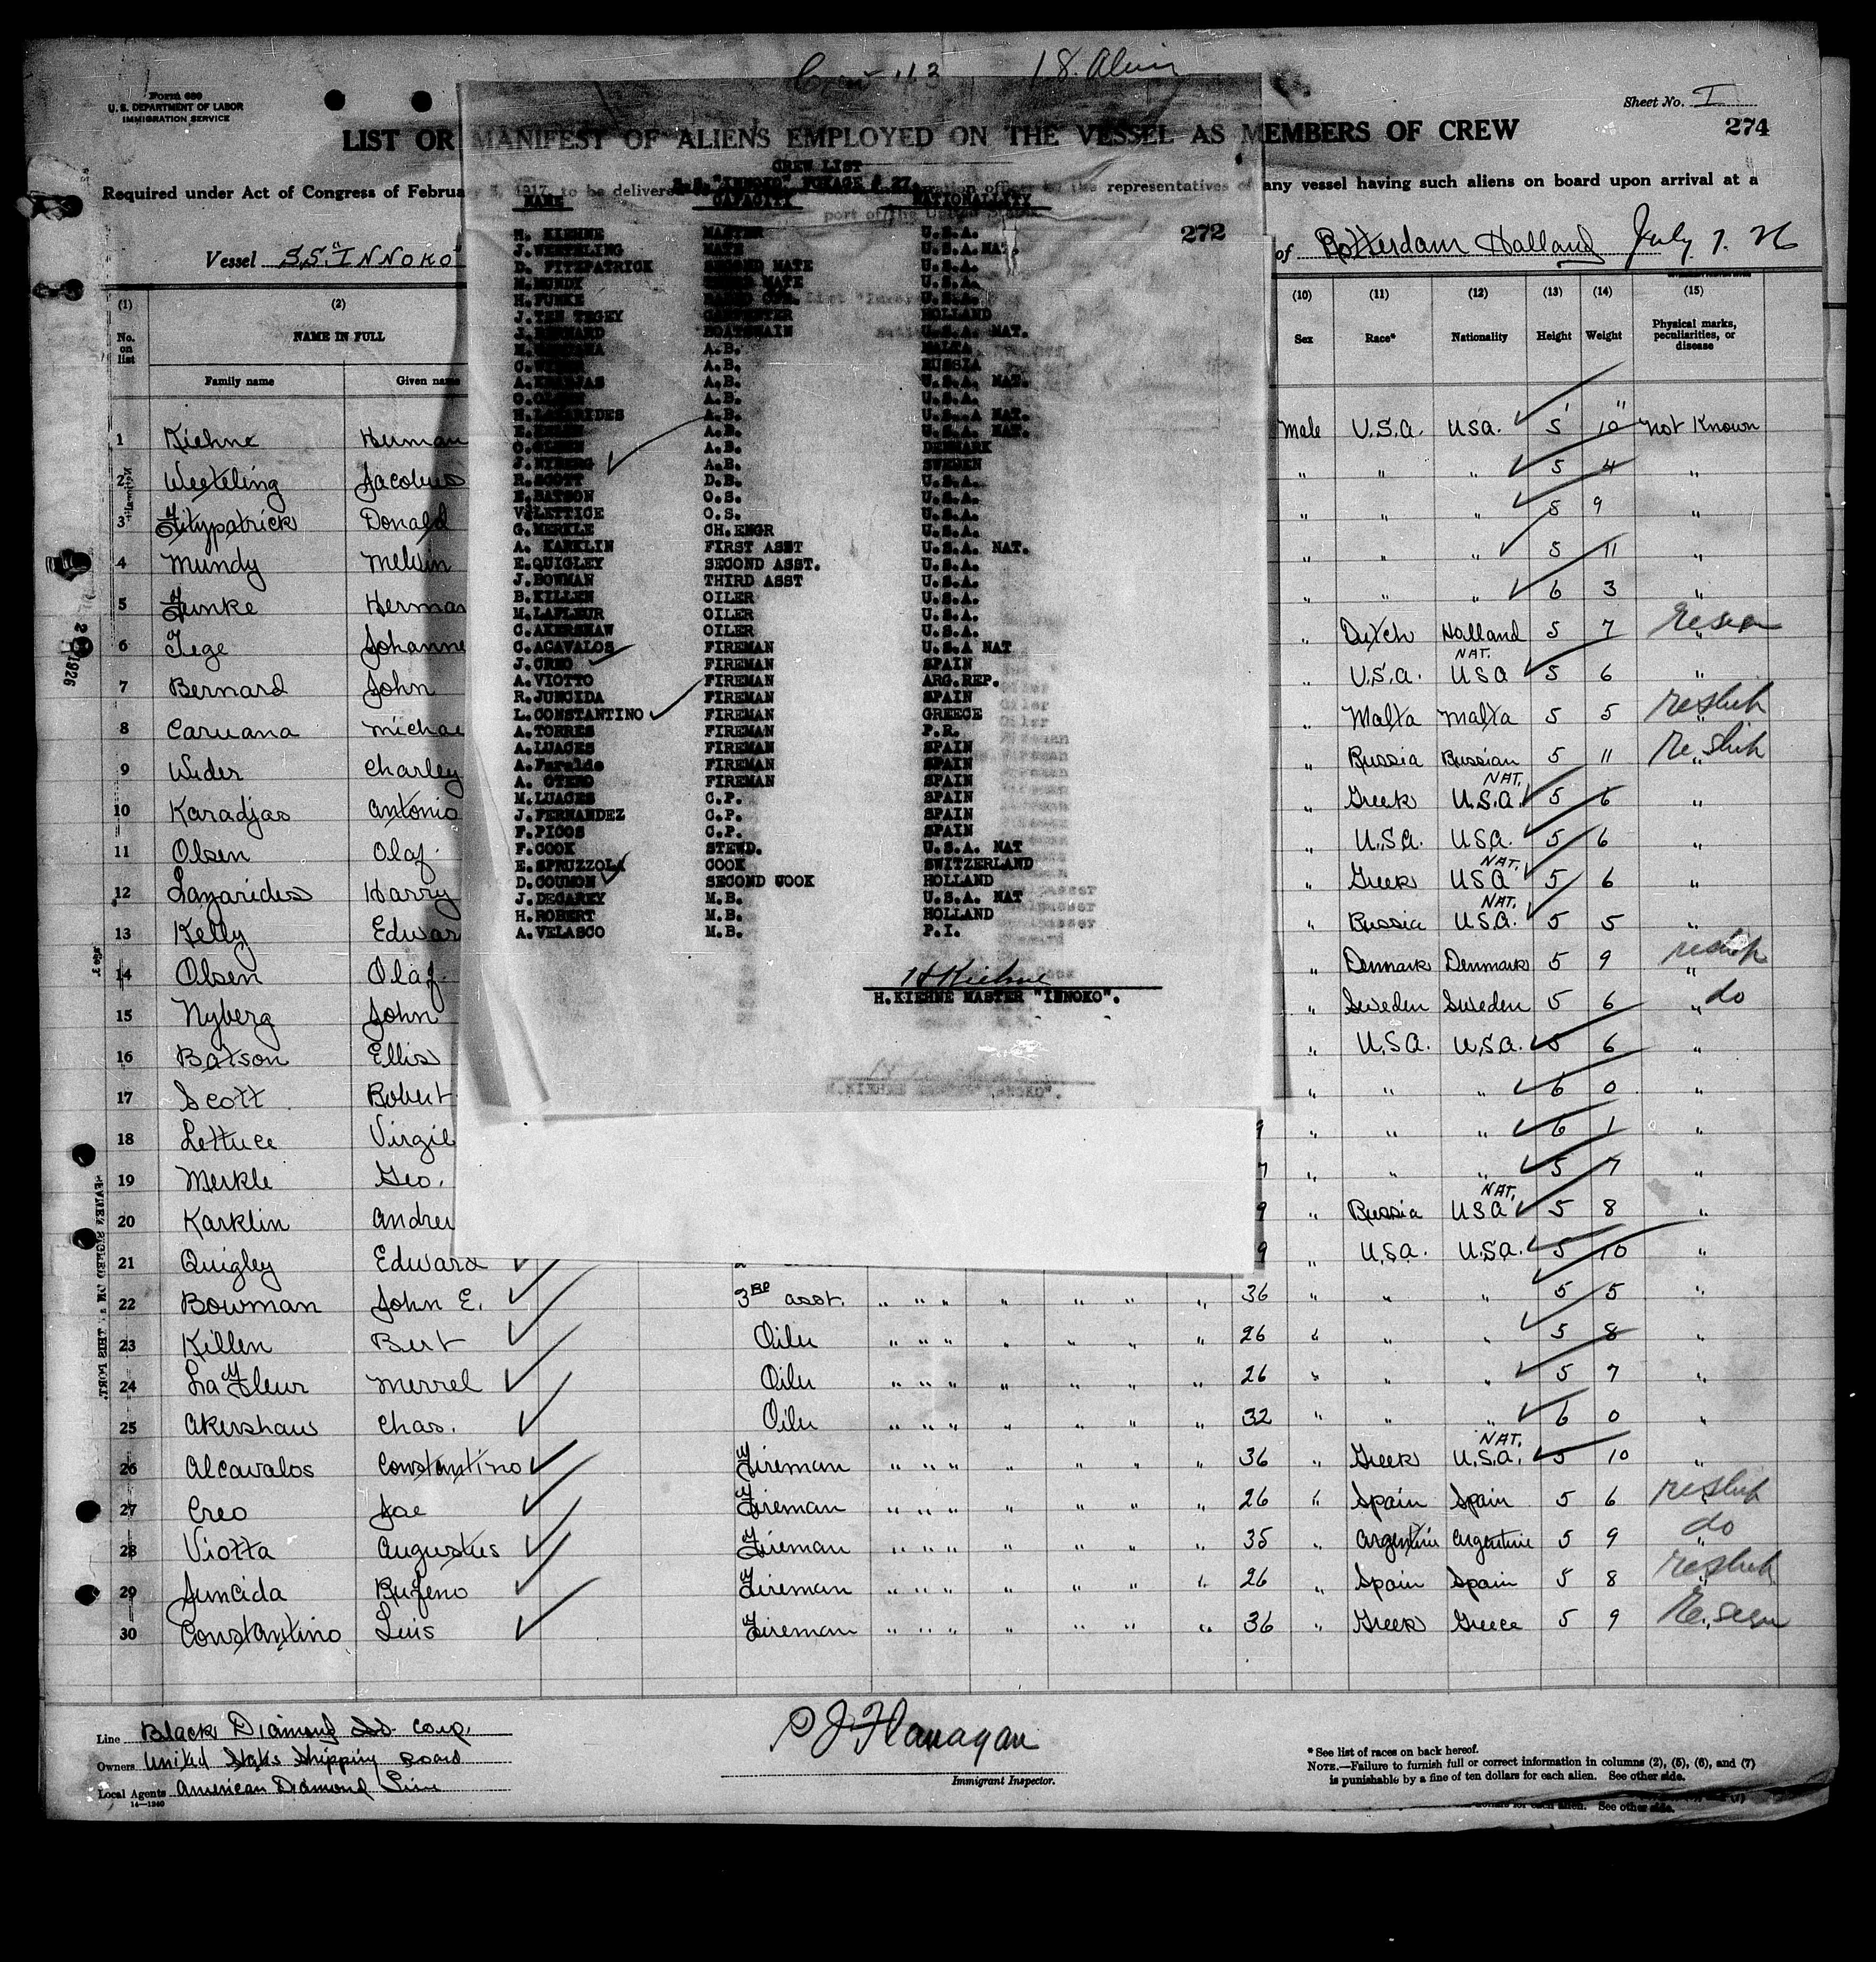 Crew 43 18 Alien
Form 689
U. S. DEPARTMENT OF LABOR
IMMIGRATION SERVICE
Sheet No. I
274
LIST OR MANIFEST OF ALIENS EMPLOYED ON THE VESSEL AS MEMBERS OF CREW
Required under Act of Congress of February 5, 1917, to be delivered representatives of any vessel having such aliens on board upon arrival at a
port of the United States
Vessel S.S. "INNOKO" of Rotterdam Holland July 7. 26
CREW LIST
S.S. "INNOKO" VOYAGE # 27.
NAME CAPACITY NATIONALLITY
272
H. KIEHNE MASTER U.S.A.
J.WEETELING MATE U.S.A.NAT.
D. FITZPATRICK SECOND MATE U.S.A.
M.MUNDY MATE U.S.A.
H.FUNKE RADIO OPR. U.S.A.
J.TEN TEGEY CARPENTER HOLLAND
J.BERNARD BOATSWAIN U.S.A. NAT.
M.CARUANA A.B. MALTA
C.WIDER A.B. RUSSIA
A.KARDJAS A.B. U.S.A. NAT.
O.OLSEN A.B. U.S.A.
H.LAZARIDES A.B. U.S..A NAT.
A.B. U.S.A. NAT.
O.OLSEN A.B. DENMARK
J.NYBERG A.B. SWEDEN
R.SCOTT D.B. U.S.A.
E.BATSON O.S. U.S.A.
V.LETTICE O.S. U.S.A.
G.MERKLE CH.ENGR U.S.A.
A. KARKLIN FIRST ASST U.S.A. NAT.
E.QUIGLEY SECOND ASST. U.S.A.
J.BOWMAN THIRD ASST U.S.A.
B.KILLEN OILER U.S.A.
M.LAFLEUR OILER U.S.A.
C.AKERSHAW OILER U.S.A.
C.ACAVALOS FIREMAN U.S.A NAT
J.CREO FIREMAN SPAIN
A.VIOTTO FIREMAN ARG.REP.
R.JUNCIDA FIREMAN SPAIN
L.CONSTANTINO FIREMAN GREECE
A.TORRES FIREMAN P.R.
A.LUACES FIREMAN SPAIN
A.Feraldo FIREMAN SPAIN
A. OTERO FIREMAN SPAIN
M.LUACES C.P. SPAIN
J.FERNANDEZ C.P. SPAIN
F.PICOS C.P. SPAIN
F.COOK STEWD. U.S.A. NAT
E.SPRUZZOLA COOK SWITZERLAND
D.COUMON SECOND COOK HOLLAND
J.DEGAREY M.B. U.S.A. NAT
H.ROBERT M.B. HOLLAND
A.VELASCO M.B. P.I.
H Kiehne
H.KIEHNE MASTER "INNOKO".
(1) (2) (10) (11) (12) (13) (14) (15)
No. on list NAME IN FULL Sex Race* Nationality Height Weight Physical marks, peculiarities, or disease
Family name Given name
1 Kiehne Herman Male U.S.A. USA. 5' 10" not Known
2 Weeteling Jacobus " " " 5 4 "
3 Fitzpatrick Donald " " " 5 9 "
4 Mundy Melvin " " " 5 11 "
5 Funke Herman " " " 6 3 "
6 Tege Johanne " Dutch Holland 5 7 "
7 Bernard John " U.S.A. NAT. USA 5 6 "
8 Caruana Michae " Malta Malta 5 5 reship
9 Wider Charley " Russia Russian 5 11 reship
10 Karadjas Antonio " Greek NAT. U.S.A. 5 6 "
11 Olsen Olaf. " U.S.A. USA. 5 6 "
12 Lazarides Harry " Greek NAT. USA 5 6 "
13 Kelly Edwar " Russia NAT. U.S.A. 5 5 "
14 Olsen Olaf. " Denmark Denmark 5 9 reship
15 Nyberg John " Sweden Sweden 5 6 " do
16 Batson Ellis " U.S.A. U.S.A. 5 6 "
17 Scott Robert " " " 6 0 "
18 Lettuce Virgil 9 " " " 6 1 "
19 Merkle Geo. 7 " " " 5 7 "
20 Karklin Andrew 9 " Russia NAT. USA 5 8 "
21 Quigley Edward 9 " U.S.A. U.S.A. 5 10 "
22 Bowman John E. 3RD asst. " " " " " " " 36 " " " 5 5 "
23 Killen Bert Oiler " " " " " " " 26 " " " 5 8 "
24 LaFleur Merrel Oiler " " " " " " " 26 " " " 5 7 "
25 Akershaw Chas. Oiler " " " " " " " 32 " " " 6 0 "
26 Alcavalos Constantino Fireman " " " " " " " 36 " Greek NAT. U.S.A. 5 10 "
27 Creo Joe Fireman " " " " " " " 26 " Spain Spain 5 6 reship
28 Viotta Augustus Fireman " " " " " " " 35 " Argentine Argentine 5 9 do
29 Juncida Rufeno Fireman " " " " " " " 26 " Spain Spain 5 8 reship
30 Constantino Luis Fireman " " " " " " " 36 " Greek Greece 5 9
Line Black Diamond SS. Corp.
Owners United States Shipping Board
Local Agents American Diamond Line
14—1240
P J Flanagan
Immigrant Inspector.
* See list of races on back hereof.
NOTE.—Failure to furnish full or correct information in columns (2), (5), (6), and (7)
is punishable by a fine of ten dollars for each alien. See other side.